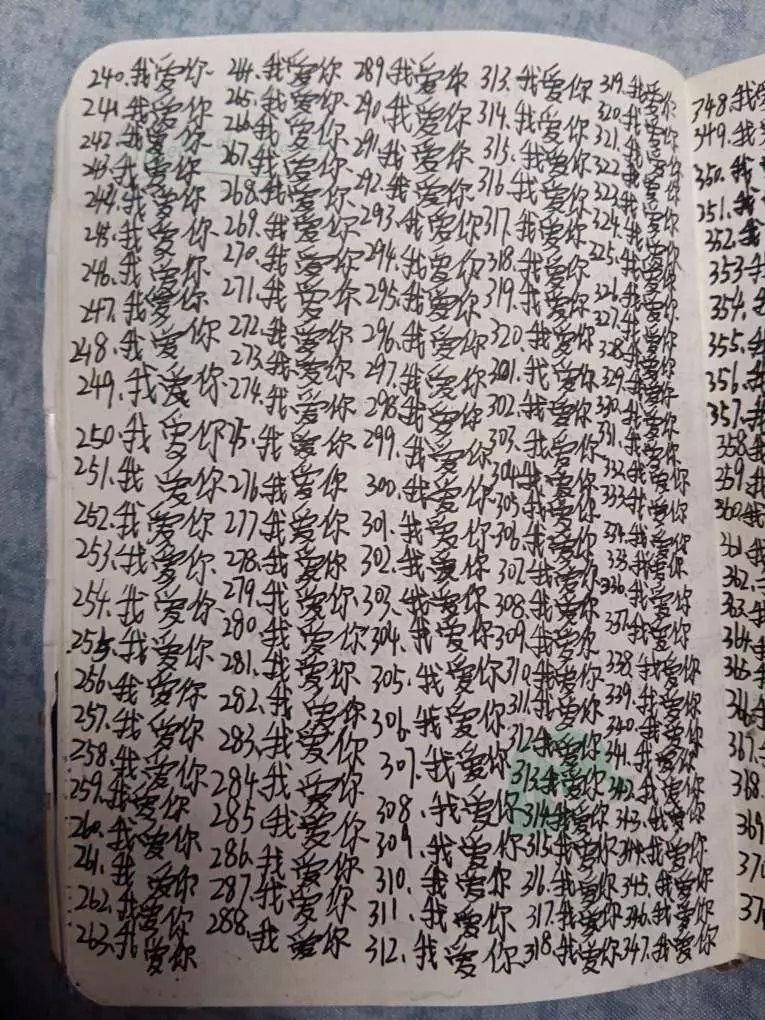 240.我爱你
241.我爱你
242.我爱你
243.我爱你
244.我爱你
245.我爱你
246.我爱你
247.我爱你
248.我爱你
249.我爱你
250.我爱你
251.我爱你
252.我爱你
253.我爱你
254.我爱你
255.我爱你
256.我爱你
257.我爱你
258.我爱你
259.我爱你
260.我爱你
261.我爱你
262.我爱你
263.我爱你
264.我爱你
265.我爱你
266.我爱你
267.我爱你
268.我爱你
269.我爱你
270.我爱你
271.我爱你
272.我爱你
273.我爱你
274.我爱你
75.我爱你
276.我爱你
277.我爱你
278.我爱你
279.我爱你
280.我爱你
281.我爱你
282.我爱你
283.我爱你
284.我爱你
285.我爱你
286.我爱你
287.我爱你
288.我爱你
289.我爱你
290.我爱你
291.我爱你
292.我爱你
293.我爱你
294.我爱你
295.我爱你
296.我爱你
297.我爱你
298.我爱你
299.我爱你
300.我爱你
301.我爱你
302.我爱你
303.我爱你
304.我爱你
305.我爱你
306.我爱你
307.我爱你
308.我爱你
309.我爱你
310.我爱你
311.我爱你
312.我爱你
313.我爱你
314.我爱你
315.我爱你
316.我爱你
317.我爱你
318.我爱你
319.我爱你
320.我爱你
301.我爱你
302.我爱你
303.我爱你
304.我爱你
305.我爱你
306.我爱你
307.我爱你
308.我爱你
309.我爱你
310.我爱你
311.我爱你
312.我爱你
313.我爱你
314.我爱你
315.我爱你
316.我爱你
317.我爱你
318.我爱你
319.我爱你
320.我爱你
321.我爱你
322.我爱你
323.我爱你
324.我爱你
325.我爱你
326.我爱你
327.我爱你
328.我爱你
329.我爱你
330.我爱你
331.我爱你
332.我爱你
333.我爱你
334.我爱你
335.我爱你
336.我爱你
337.我爱你
338.我爱你
339.我爱你
340.我爱你
341.我爱你
342.我爱你
343.我爱你
344.我爱你
345.我爱你
346.我爱你
347.我爱你
348.我爱
349.我
350.我
351.我
352.我
353.我
354.我
355.我
356.我
357.我
358.我
359.我
360.我
361.我
362.
363.我
364.我
365.我
366.我
367.我
368.
369
370
37